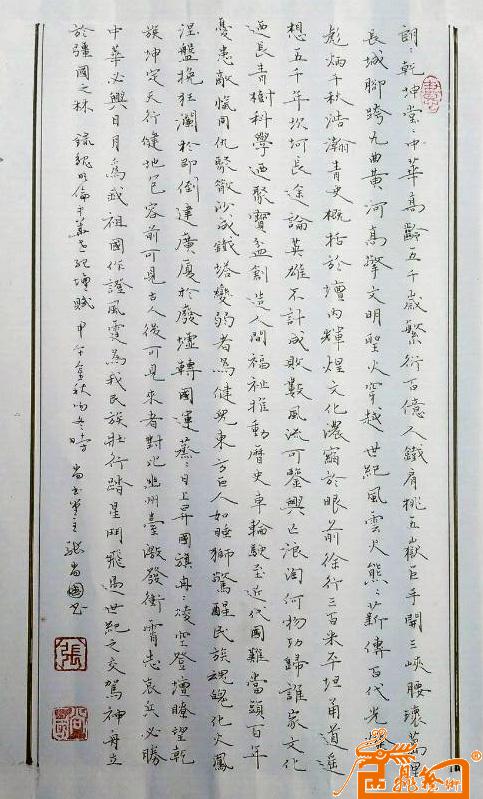 朗〻乾坤堂〻中華高齡五千歲繁衍百億人鐵肩挑五嶽巨手開三峽腰環萬里
長城腳跨九曲黃河高擎文明聖火穿越世紀風雲火熊〻薪傳百代光燦〻
彪炳千秋浩瀚青史概括於壇內輝煌文化濃縮於眼前徐行三百米平坦甬道遥
想五千年坎坷長途論英雄不計成敗數風流可鑒興亡浪淘何物功歸誰家文化
迺長青樹科學迺聚寶盆創造人間福祉推動曆史車輪駛至近代國難當頭百年
憂患敵愾同仇聚散沙成鐵塔變弱者為健兒東方巨人如睡獅驚醒民族魂魄化火鳳
涅盤挽狂瀾於即倒建廣廈於廢墟轉國運蒸〻日上昇國旗冉〻凌空登壇瞭望乾
族坤定天行健地包容前可見古人後可見來者對此幽州臺激發衝霄志哀兵必勝
中華必興日月為我祖國作證風雲為我民族壯行踏星鬥飛過世紀之交駕神舟立
於疆國之林 錄魏明倫中華世紀壇賦 甲午金秋 張當國書
張